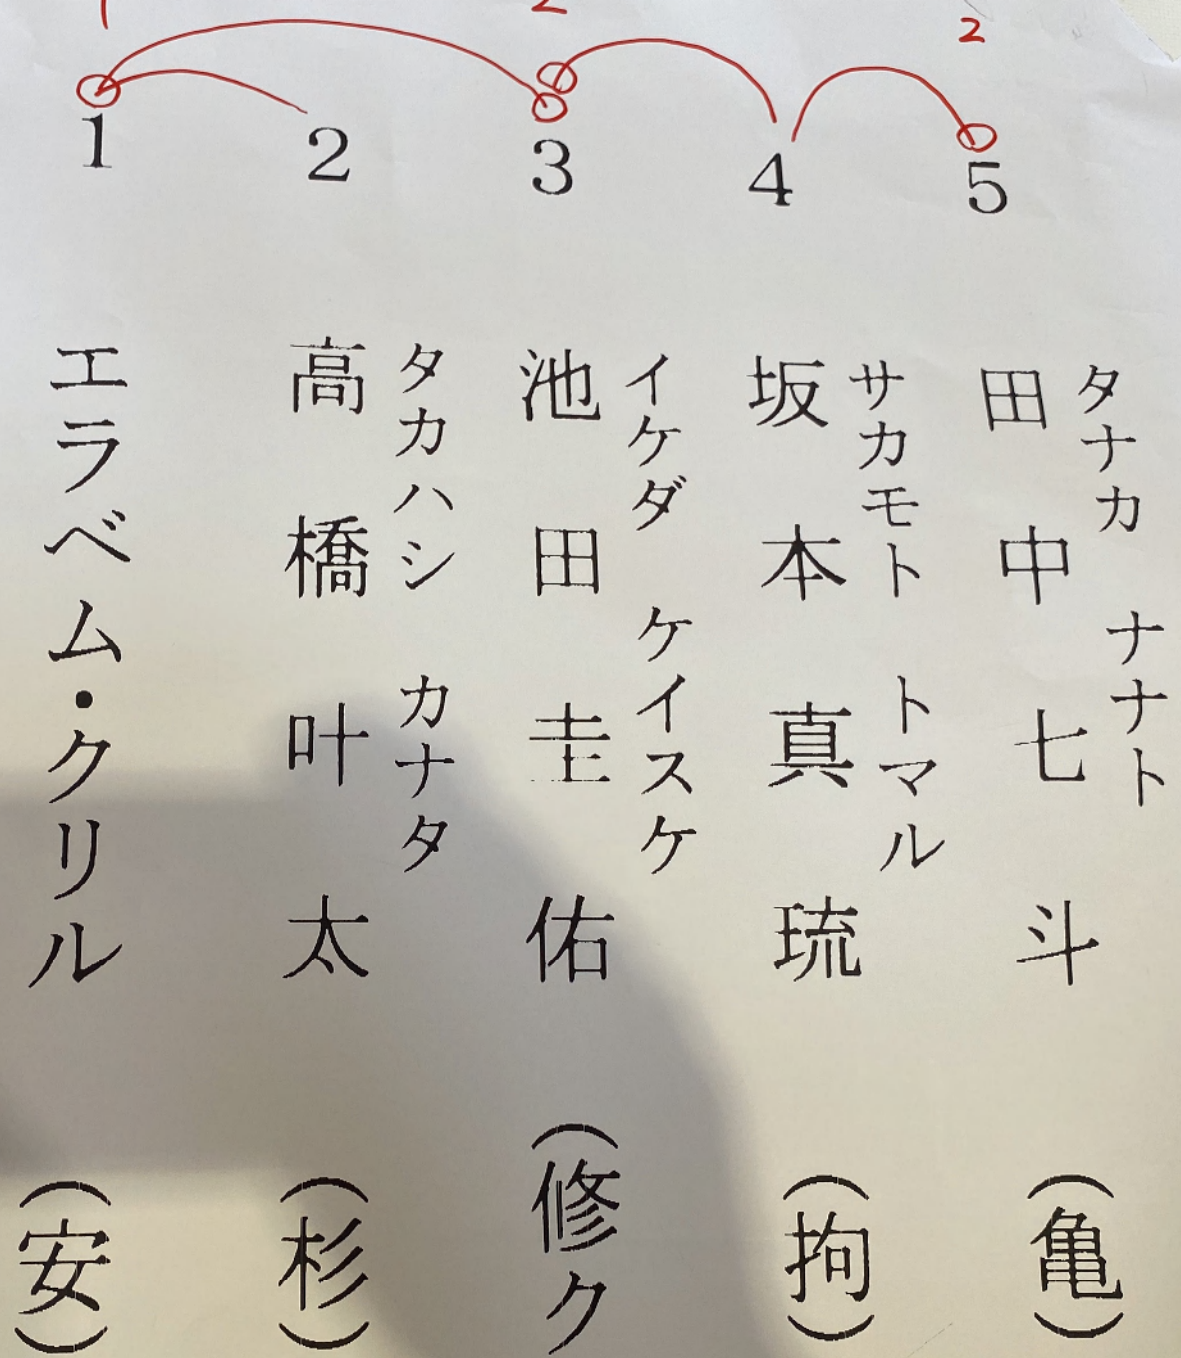 2
1 2 3 4 5
タナカ ナナト
田中七斗
(亀)
サカモト トマル
坂本真琉
(拘)
イケダ ケイスケ
池田圭佑
(修ク
タカハシ カナタ
高橋叶太
(杉)
エラベム・クリル
(安)